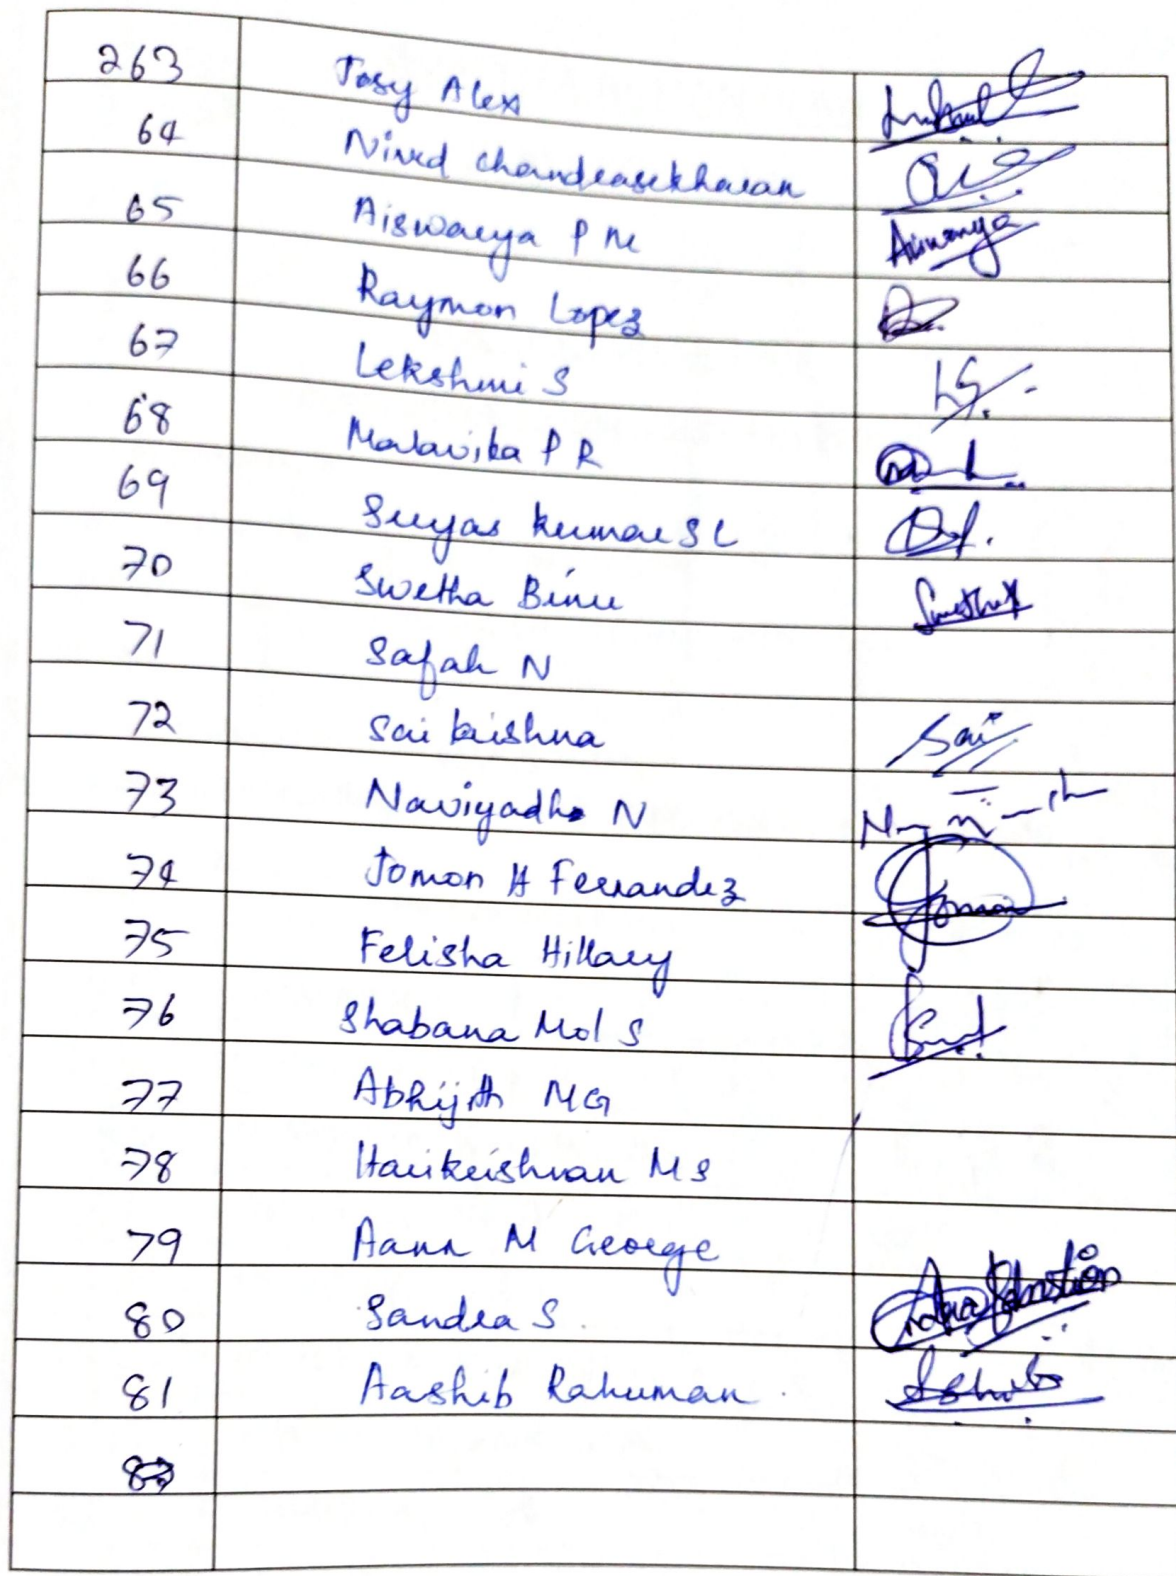 263 Josy Alex
64 Nived Chandrasekharan
65 Aiswarya P M Aiswarya
66 Raymon Lopez
67 Lekshmi S LS
68 Malavika P R
69 Suryas Kumar S L
70 Swetha Binu Swetha
71 Safah N
72 Sai krishna Sai
73 Naviyadh N
74 Jomon H Fernandez Jomon
75 Felisha Hillary
76 Shabana Mol S
77 Abhijith M G
78 Harikrishnan M S
79 Aann M George
80 Sandra S.
81 Aashib Rahuman